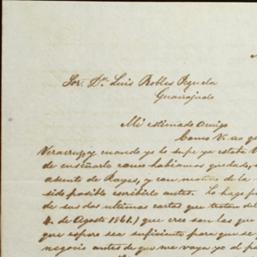 Sor. Dn. Luis Robles Pezuela
Guanajuato
Mi estimado amigo
Como V. es
Veracruz, y cuando yo lo supe ya estaba V.
de enseñarlo como habiamos quedado,
asiento de Rayas, y con motivo de la
sido posible escribirle antes. Lo hago
de sus dos ultimas cartas que tratan del
4. de Agosto 1861,) que creo son las que
que espero sea suficiente para que se
negocio antes de que me vaya yo al